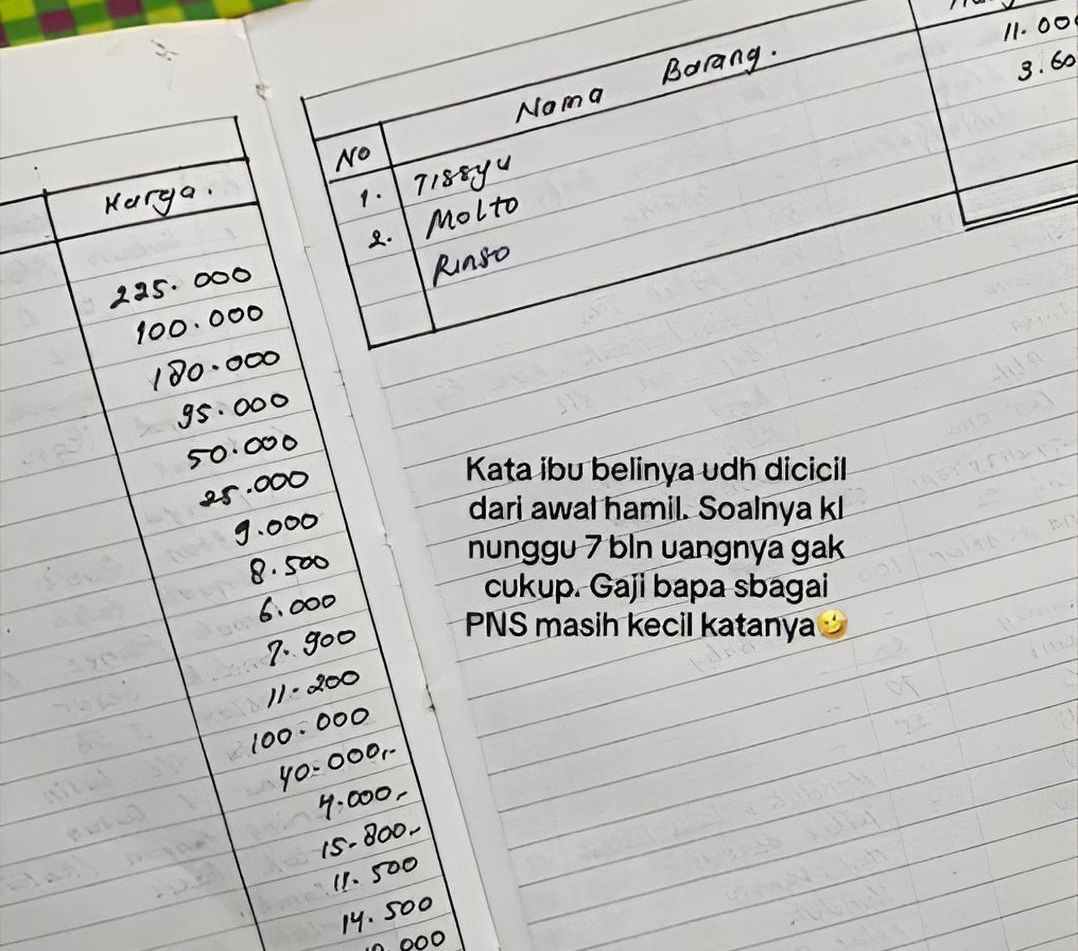 Harga.
225.000
100.000
180.000
95.000
50.000
25.000
9.000
8.500
6.000
7.900
11.200
100.000
40.000,-
4.000,-
15.800,-
11.500
14.500
No
Nama Barang.
1. TISSYU
11.00
2. MOLTO
3.60
RINSO
Kata ibu belinya udh dicicil
dari awal hamil. Soalnya kl
nunggu 7 bln uangnya gak
cukup. Gaji bapa sbagai
PNS masih kecil katanya😉